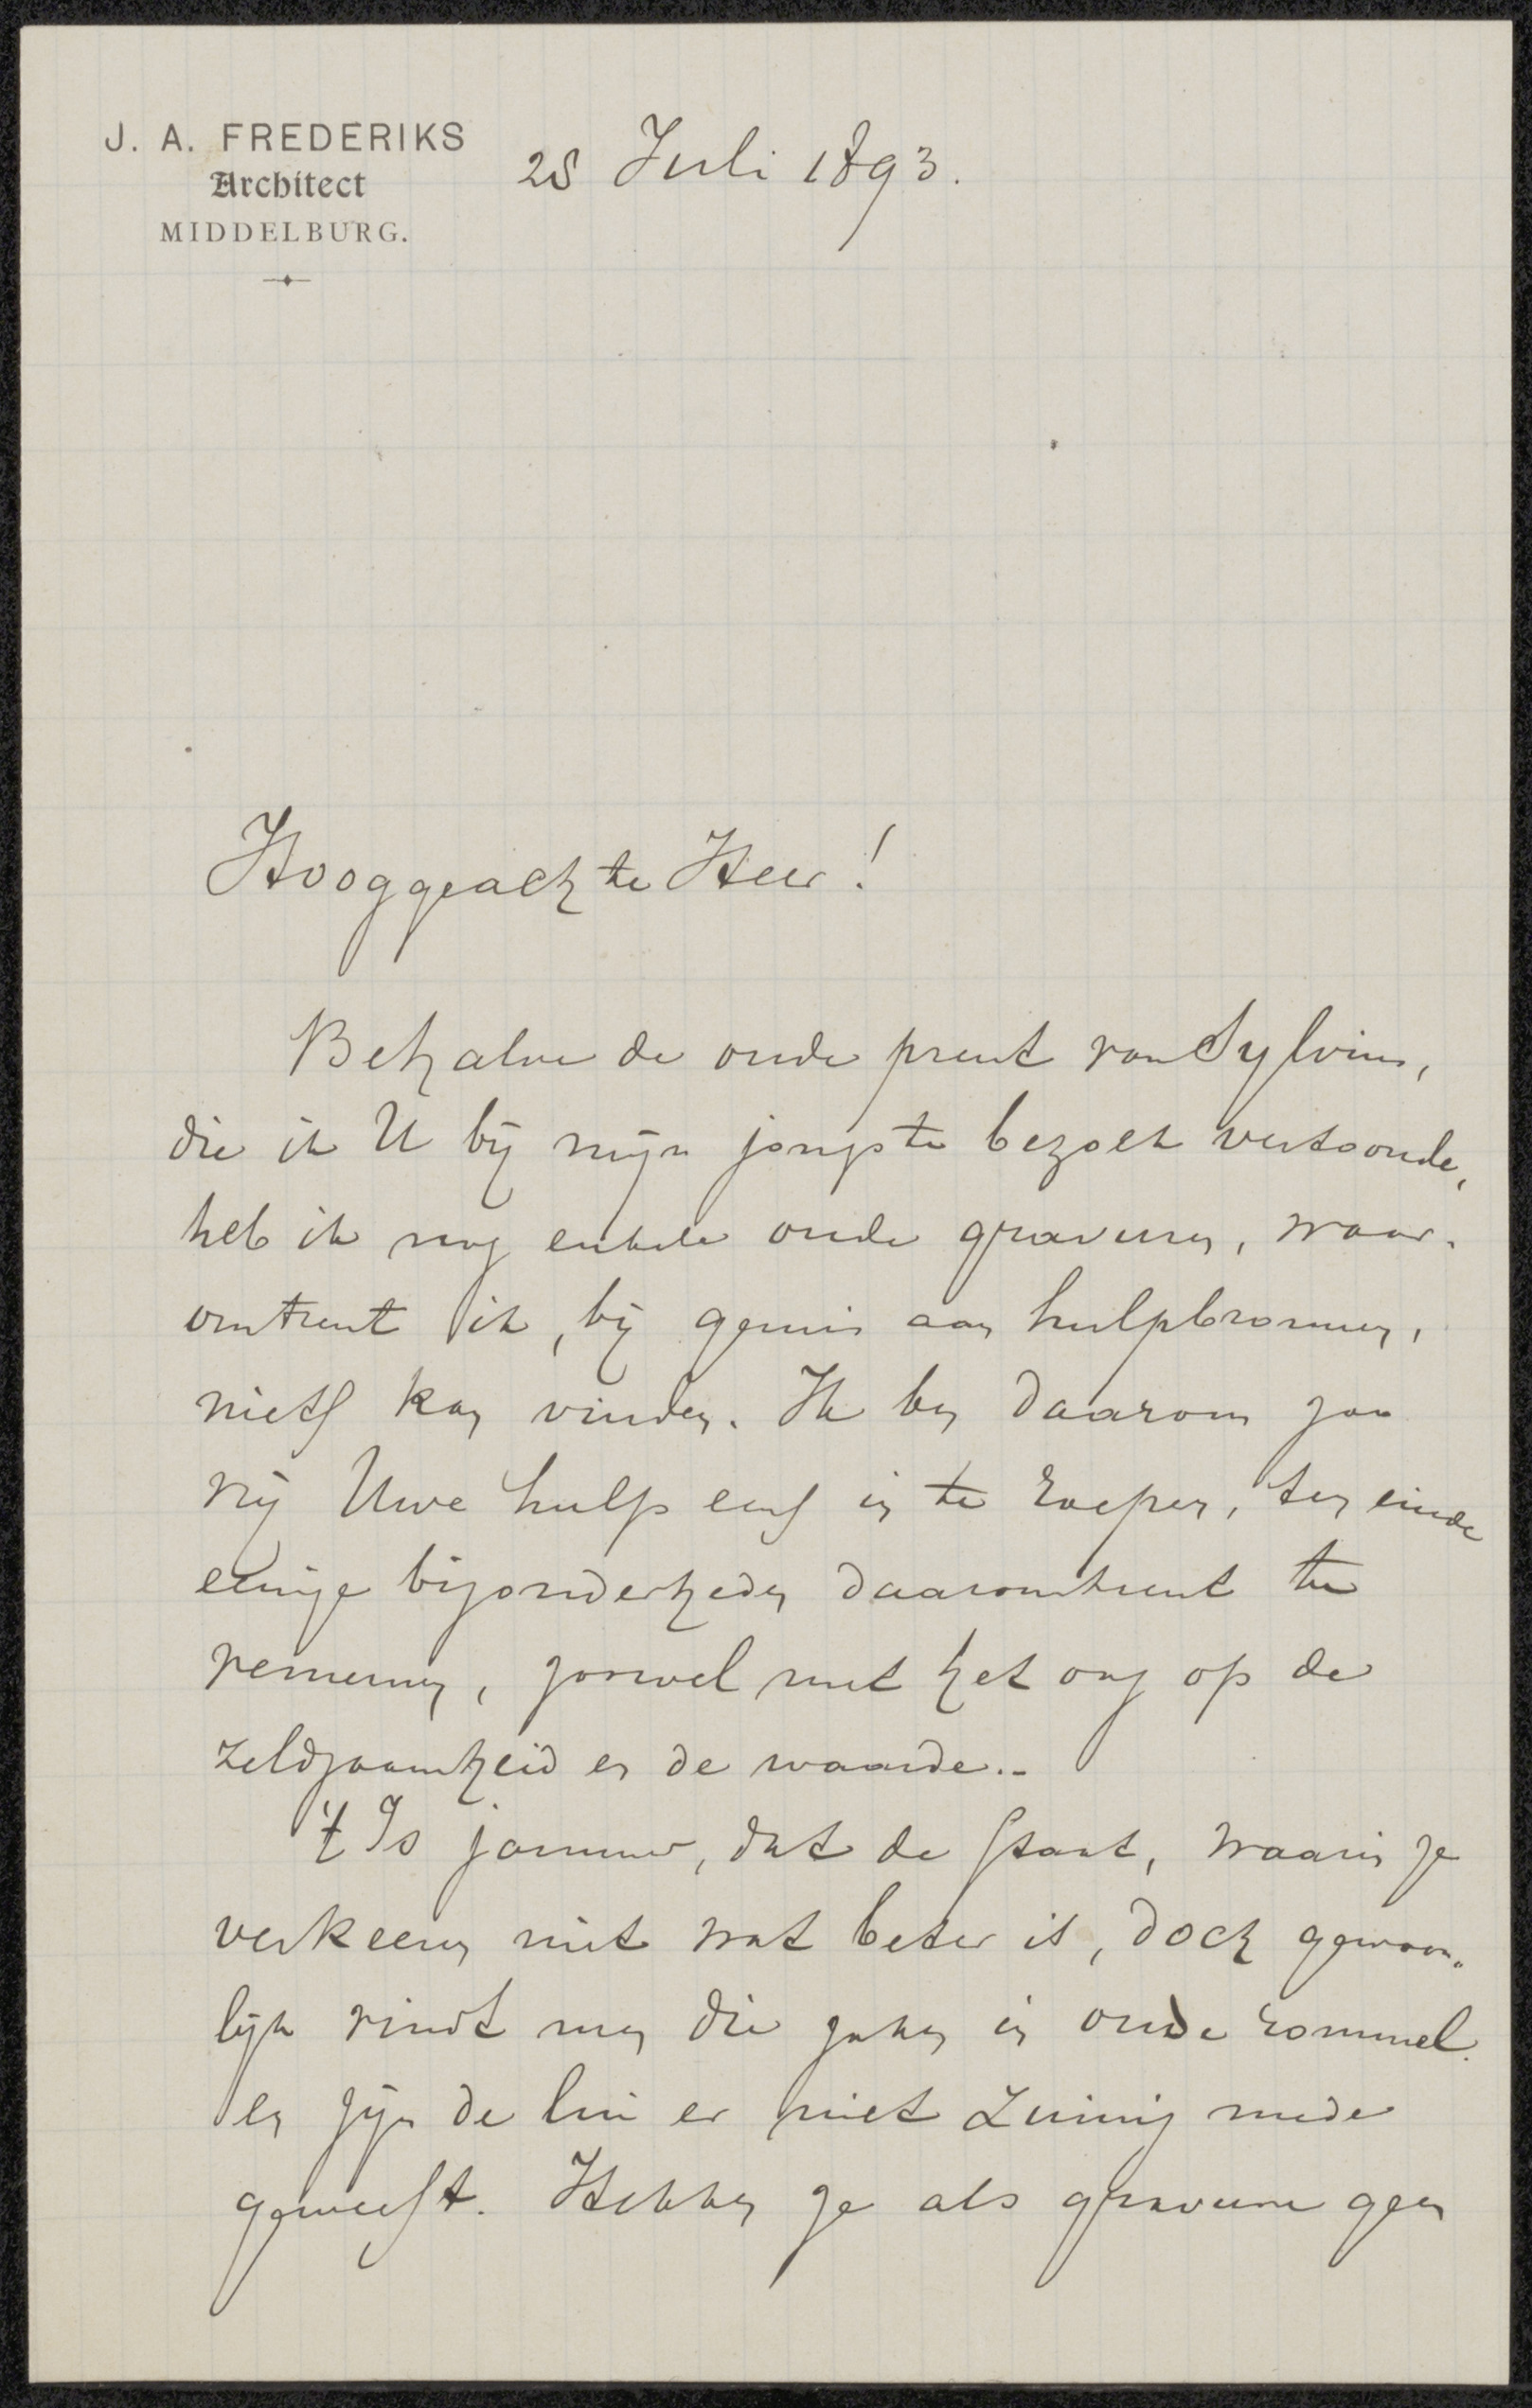 J. A. FREDERIKS
Architect
MIDDELBURG.
28 Juli 1893.
Hooggeachte Heer!
Behalve de oude prent van Sylvius,
die ik U bij mijn jongste bezoek vertoonde,
heb ik nog enkele oude gravures, waar-
omtrent ik, bij gemis aan hulpbronnen,
niets kan vinden. Ik ben daarom zoo
vrij Uwe hulp eens in te roepen, ten einde
eenige bijzonderheden daaromtrent te
vernemen, zoowel met het oog op de
zeldzaamheid en de waarde.-
't Is jammer, dat de staat, waarin ze
verkeeren niet wat beter is, doch gewoon-
lijk vindt men die zaken in oude rommel
en zijn de lui er niet zuinig mede
geweest. Hebben ze als gravure geen